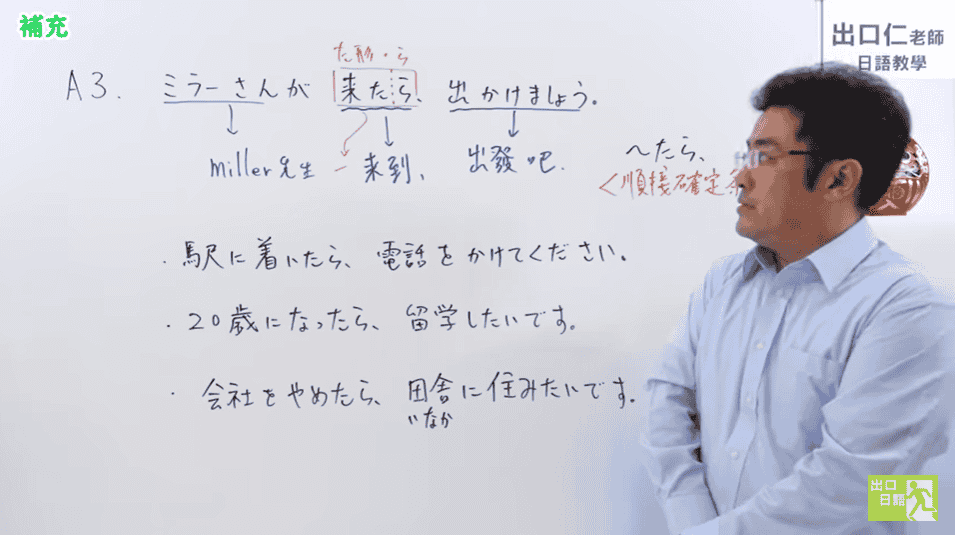 補充
出口仁老師
日語教學
た形・ら
A3. ミラーさんが 来たら、出かけましょう。
miller先生 一来到、 出發吧.
〜たら、
<順接確定条
・駅に着いたら、電話をかけてください。
・20歳になったら、留学したいです。
・会社をやめたら、田舎に住みたいです。
いなか
出口
日語